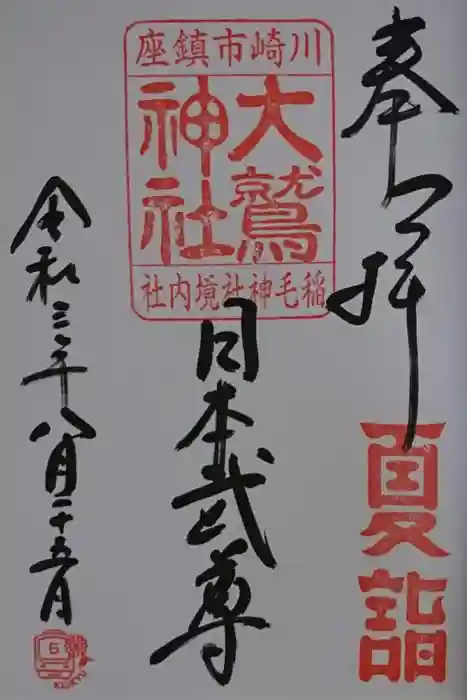 奉拝
夏詣
川崎市鎮座
大鷲
神社
稲毛神社境内社
日本武尊
令和三年八月二十五日
6
KEIKYU